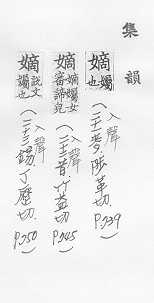 集韻
嫡孎也(入聲二十一麥陟革切.P.739)
嫡孎女審諦皃(入聲二十二昔竹益切.P.745)
嫡說文孎也(入聲二十三錫丁歷切.P.750)